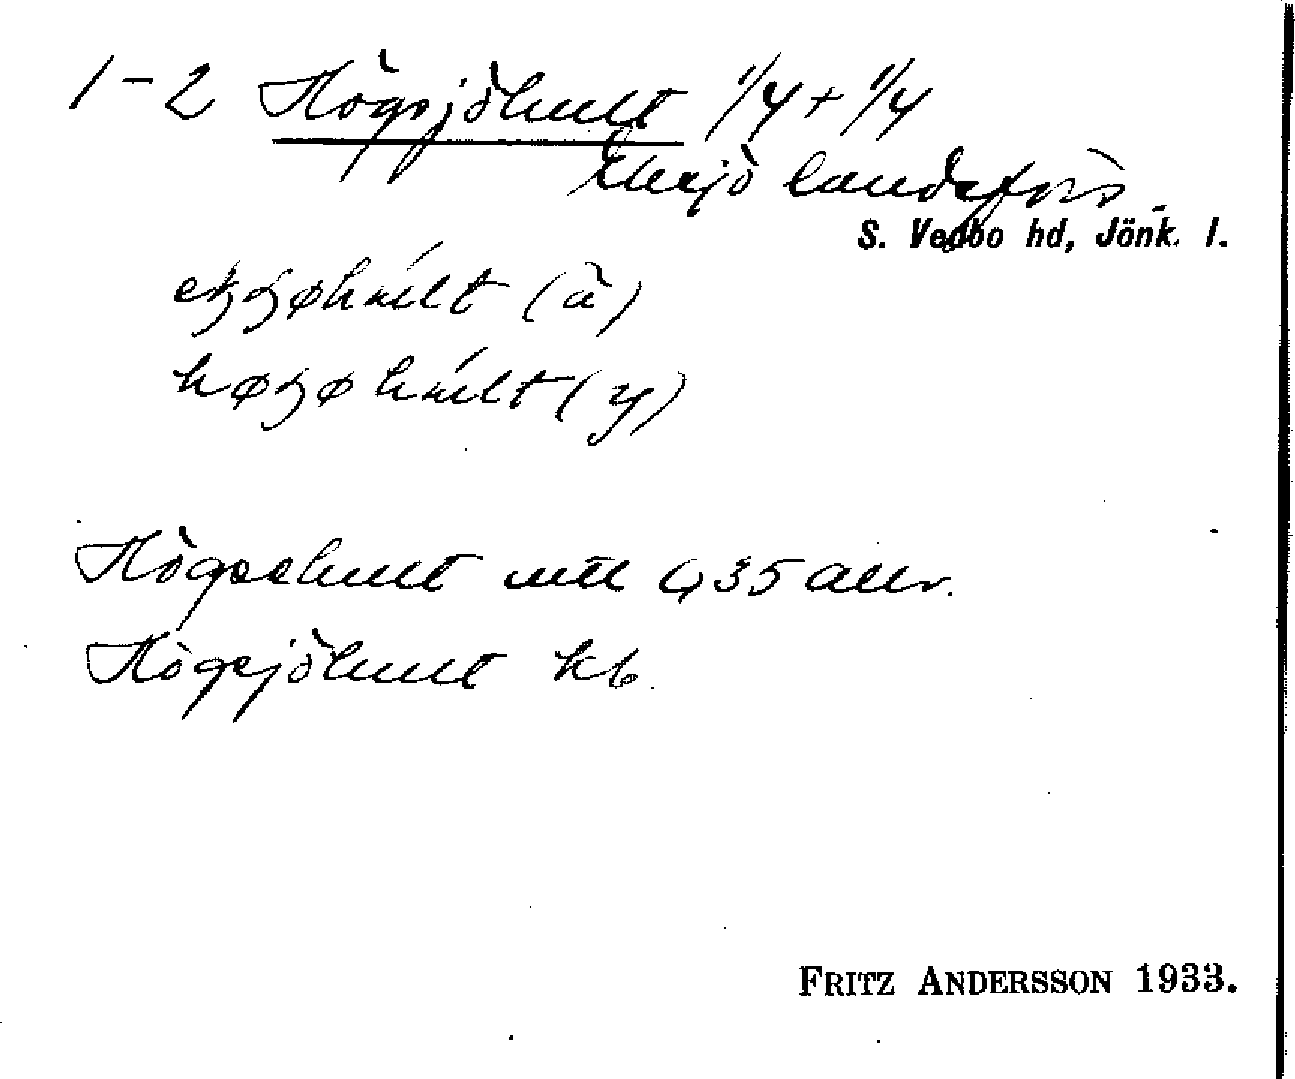 1-2 Högsjöhult 1/4 + 1/4
Eksjö landsförs.
S. Vedbo hd, Jönk. l.
(ä)
(y)
Högsehult mtl 0,35 allm.
Högsjöhult kb.
FRITZ ANDERSSON 1933.